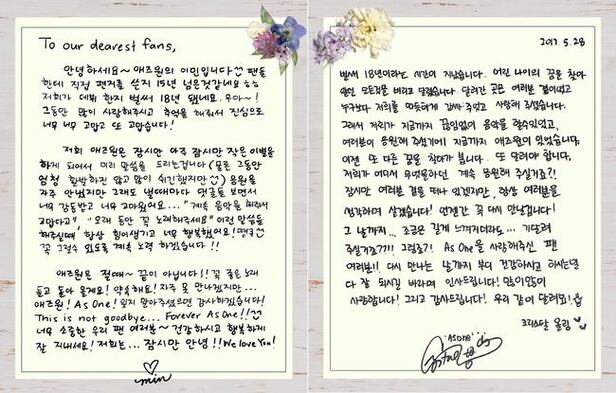 To our dearest fans,
안녕하세요~ 애즈원의 이민입니다 팬들
한테 직접 편지를 쓴지 15년 넘은것같네요 ㅎㅎ
저희가 데뷔 한지 벌써 18년 됐네요. 우아~!
그동안 많이 사랑해주시고 추억을 해줘서 진심으로
너무 너무 고맙고 또 고맙습니다!
저희 애즈원은 잠시만 아주 잠시만 작은 이별을
하게 되어서 미리 말씀을 드리는겁니다 (물론 그동안
엄청 활발하진 않고 많이 쉬긴했지만) 음원을
자주 안냈지만 그래도 낼때마다 댓글들 보면서
너무 감동받고 너무 고마웠어요... "계속 음악을 해줘서
고맙다고" "오래 동안 꼭 노래해주세요" 이런 말씀들
해주실때 항상 힘이생기고 너무 행복했어요! 땡큐
꼭 그럴수 있도록 계속 노력 하겠습니다!!
애즈원은 절때~ 끝이 아닙니다!! 꼭 좋은 노래
들고 돌아 올게요! 약속해요! 자주 못 만나겠지만...
애즈원! As One! 잊지 말아주셨으면 감사하겠습니다!
This is not goodbye... Forever As One!!
너무 소중한 우리 팬 여러분~ 건강하시고 행복하게
잘 지내세요! 저희는... 잠시만 안녕!! We Love You!
min
2017.5.28
벌써 18년이라는 시간이 지났습니다. 어린 나이의 꿈을 찾아
모든것을 버리고 달렸습니다. 달려간 곳은 여러분 곁이였고
누구보다 저희를 따뜻하게 감싸주었고 사랑해 주셨습니다.
그래서 저희가 지금까지 끊임없이 음악을 할수있었고,
여러분이 응원해 주셨기에 지금까지 애즈원이 있었습니다.
이젠 또 다른 꿈을 찾아가 봅니다. 또 달려야 합니다.
저희가 어디서 무엇을하던 계속 응원해 주실거죠?!
잠시만 여러분 곁을 떠나 있겠지만, 항상 여러분을
생각하며 살겠습니다! 언젠간 꼭 다시 만납겁니다!
그 날까지... 조금은 길게 느껴지더라도... 기다려
주실거죠?! 그렇죠?! As One을 사랑해주신 팬
여러분!! 다시 만나는 날까지 부디 건강하시고 하시는일
다 잘 되시길 바라며 인사드립니다! 많이많이
사랑합니다! 그리고 감사드립니다! 우리 같이 달려요!
크리스탈 올림
"ASONE"